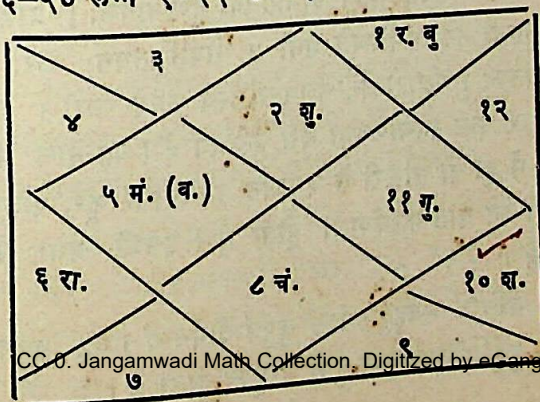 ३
१ र. बु
४
२ शु.
१२
५ मं. (व.)
११ गु.
६ रा.
८ चं.
१० श.
९
७
CC-0. Jangamwadi Math Collection. Digitized by eGang